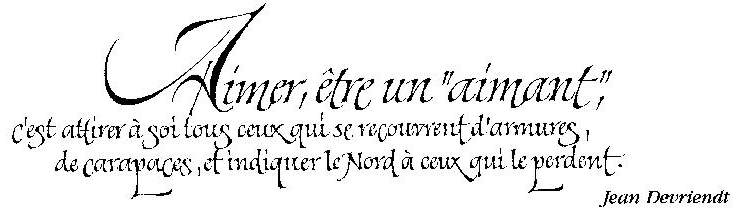 Aimer, être un "aimant",
c'est attirer à soi tous ceux qui se recouvrent d'armures,
de carapaces, et indiquer le Nord à ceux qui le perdent.
Jean Devriendt